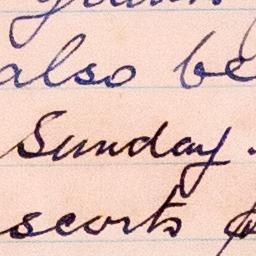 also be
Sunday.
scorts